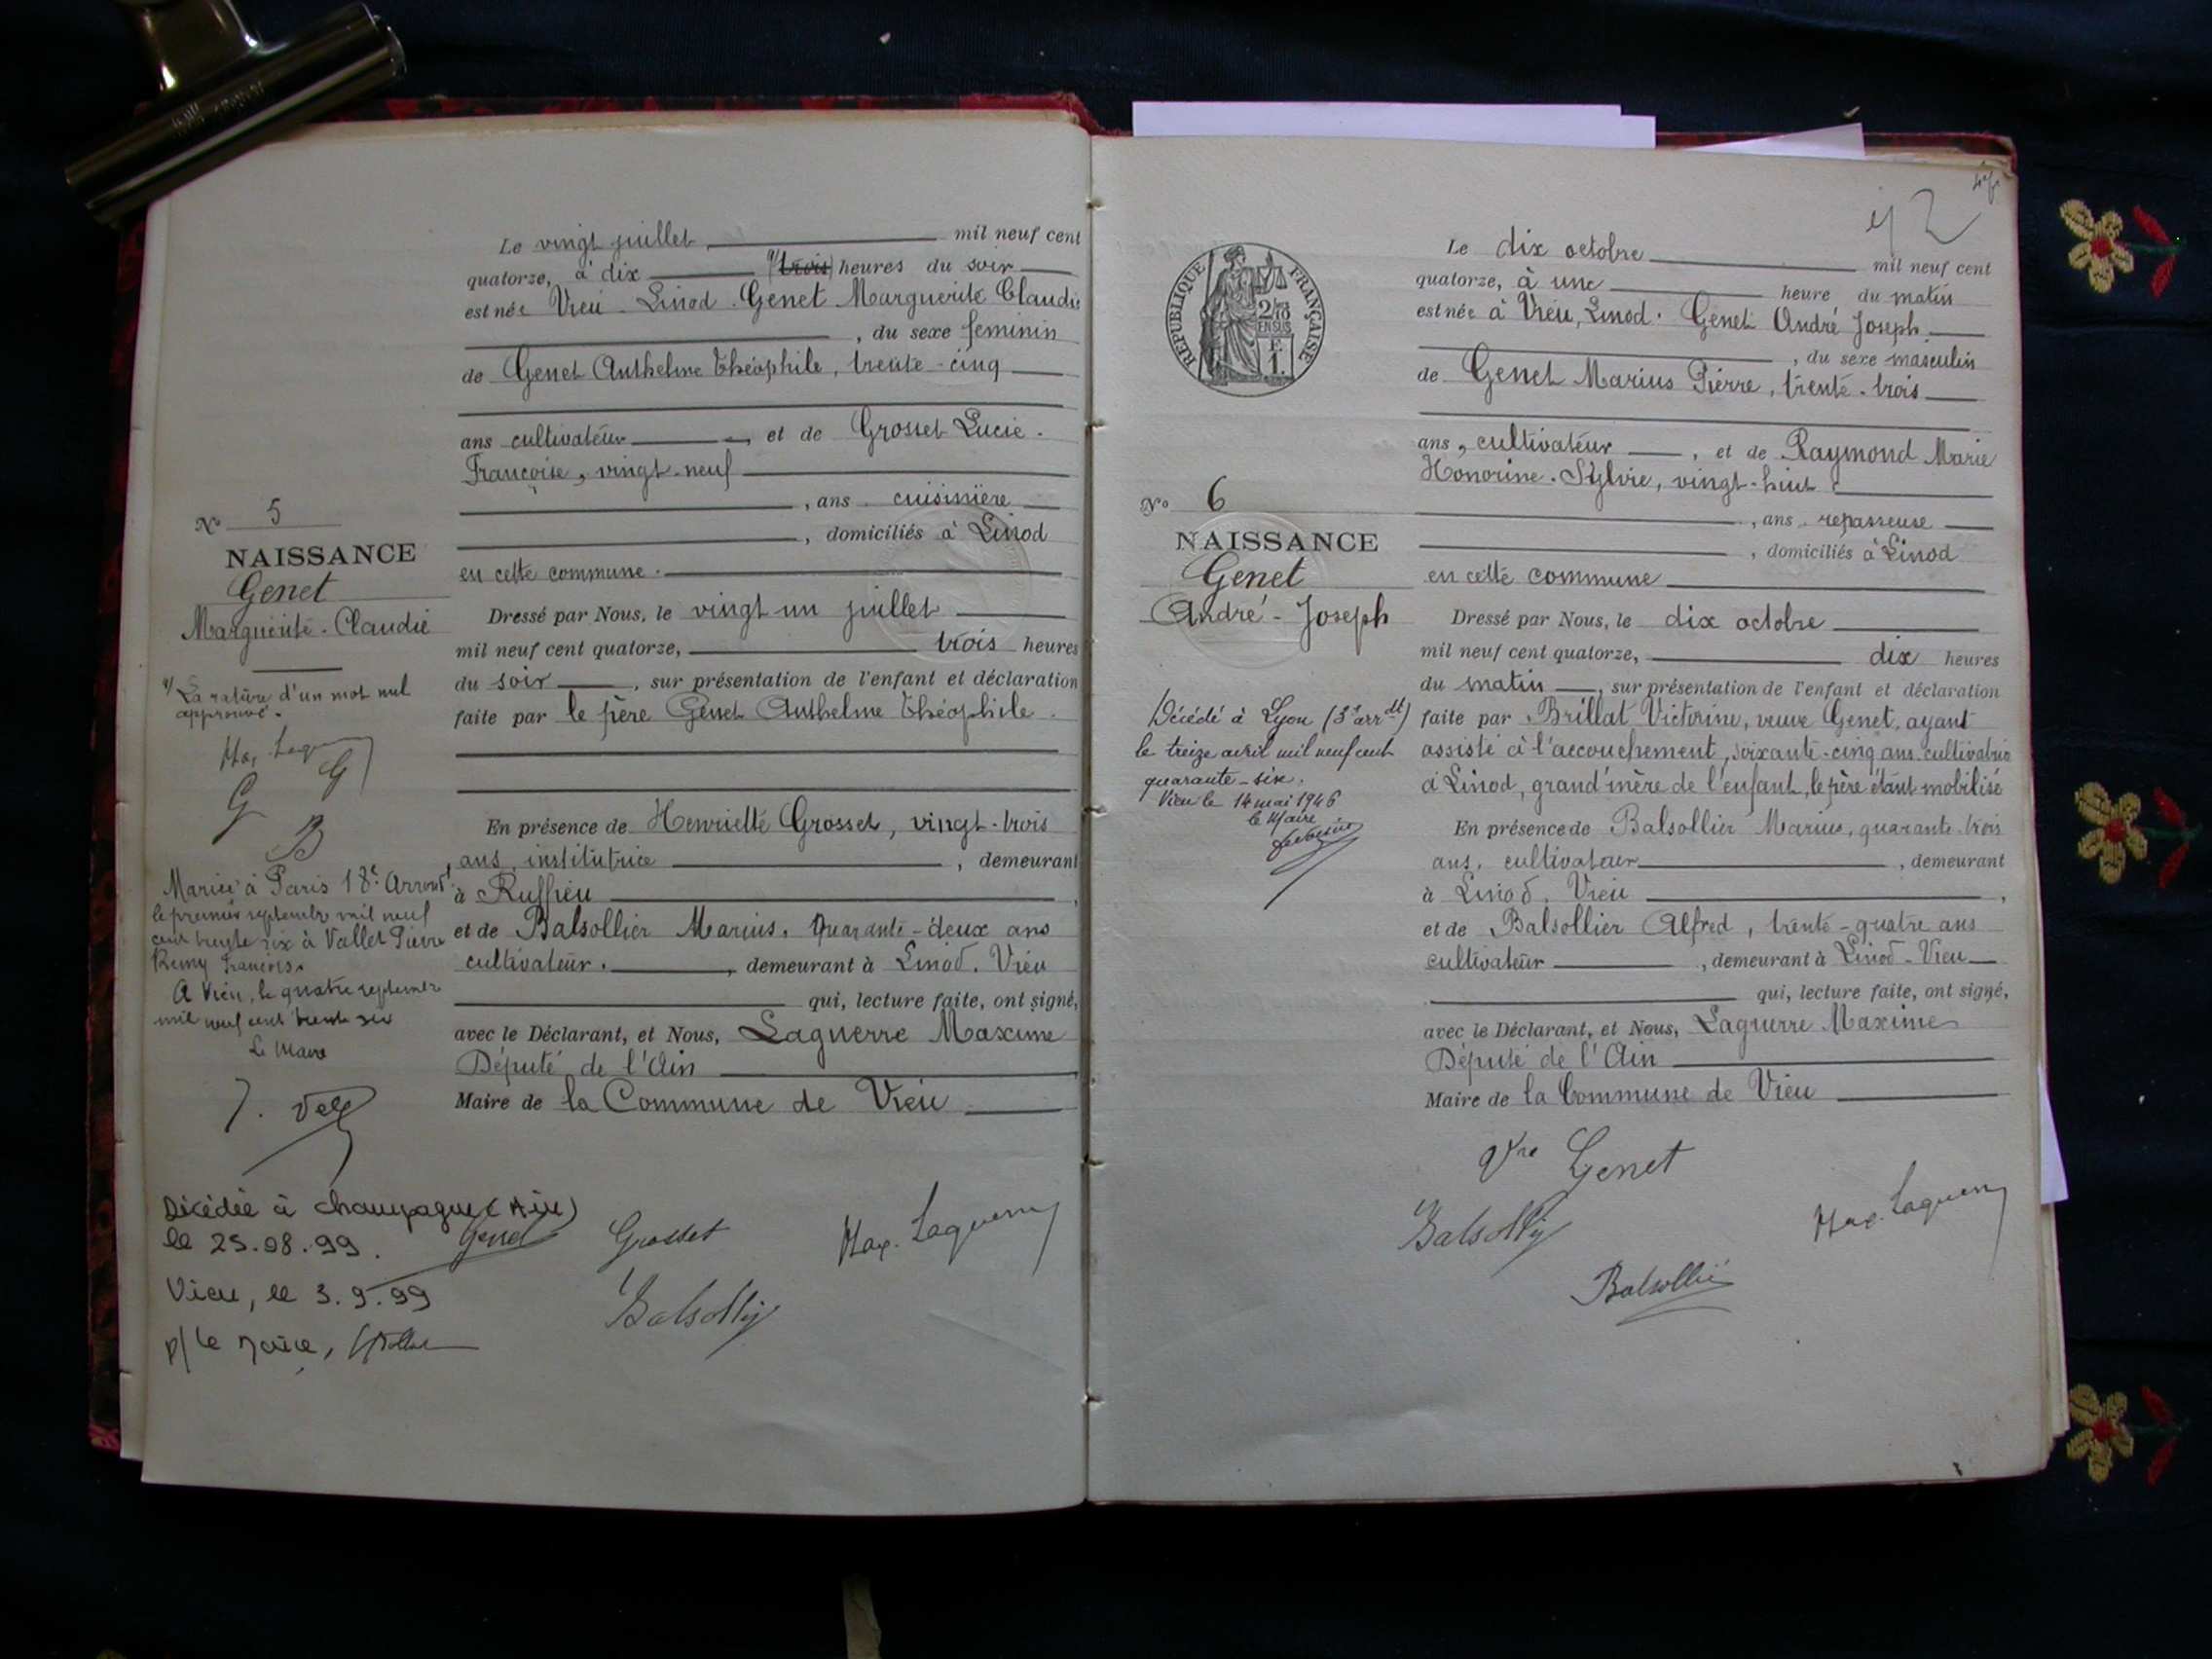 Le vingt juillet mil neuf cent
quatorze, à dix (trois) heures du soir
est née Vieu - Linod. Genet Marguerite Claudie
, du sexe féminin
de Genet Anthelme Théophile, trente-cinq
ans cultivateur, et de Grosset Lucie.
Françoise, vingt-neuf
, ans cuisinière
, domiciliés à Linod
en cette commune.
Dressé par Nous, le vingt un juillet
mil neuf cent quatorze, trois heures
du soir, sur présentation de l'enfant et déclaration
faite par le père Genet Anthelme Théophile.
En présence de Henriette Grosset, vingt-trois
ans, institutrice, demeurant
à Ruffieu,
et de Balsollier Marius, quarante-deux ans
cultivateur., demeurant à Linod. Vieu
qui, lecture faite, ont signé,
avec le Déclarant, et Nous, Laguerre Maxime
Député de l'Ain
Maire de la Commune de Vieu
N° 5
NAISSANCE
Genet
Marguerite-Claudie
La rature d'un mot nul
approuvé.
Max. Laguerre
G G
B
Mariée à Paris 18e Arrondt
le premier septembre mil neuf
cent trente six à Vallet Pierre
Remy François.
A Vieu, le quatre septembre
mil neuf cent trente six
Le Maire
Décédée à Champagne (Ain)
le 25.08.99.
Vieu, le 3.9.99
p/ le Maire,
Genet Grosset Max. Laguerre
Balsollier
42
RÉPUBLIQUE FRANÇAISE
2/10
EN SUS
F.
1.
Le dix octobre mil neuf cent
quatorze, à une heure du matin
est née à Vieu, Linod. Genet André Joseph
, du sexe masculin
de Genet Marius Pierre, trente-trois
ans, cultivateur, et de Raymond Marie
Honorine. Sylvie, vingt-huit
, ans repasseuse
, domiciliés à Linod
en cette commune
Dressé par Nous, le dix octobre
mil neuf cent quatorze, dix heures
du matin, sur présentation de l'enfant et déclaration
faite par Brillat Victorine, veuve Genet, ayant
assisté à l'accouchement, soixante-cinq ans cultivatrice
à Linod, grand'mère de l'enfant, le père étant mobilisé
En présence de Balsollier Marius, quarante-trois
ans, cultivateur, demeurant
à Linod, Vieu,
et de Balsollier Alfred, trente-quatre ans
cultivateur, demeurant à Linod-Vieu
qui, lecture faite, ont signé,
avec le Déclarant, et Nous, Laguerre Maxime
Député de l'Ain
Maire de la Commune de Vieu
N° 6
NAISSANCE
Genet
André-Joseph
Décédé à Lyon (3e arrdt)
le treize avril mil neuf cent
quarante-six.
Vieu le 14 mai 1946
le Maire
Vve Genet
Balsollier Max. Laguerre
Balsollier